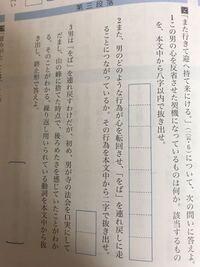 第三段落
「また行きて迎へ持て来にける。」(一四・6)について、次の問いに答えよ。
1この男の心を反省させた契機になっているものは何か。該当するもの
を、本文中から八字以内で抜き出せ。
2また、男のどのような行為が心を転回させ、「をば」を連れ戻しに走
ることにつながっているか。その行為を本文中から二字で抜き出せ。
3男は「をば」を連れ戻すわけだが、初め、男が寺の法会を口実にして
だまし、山の峰に捨てた時点で、後ろめたさを感じていたことがわか
る。そこがわかる、繰り返し用いられている動詞を本文中から抜
き出し、終止形で答えよ。